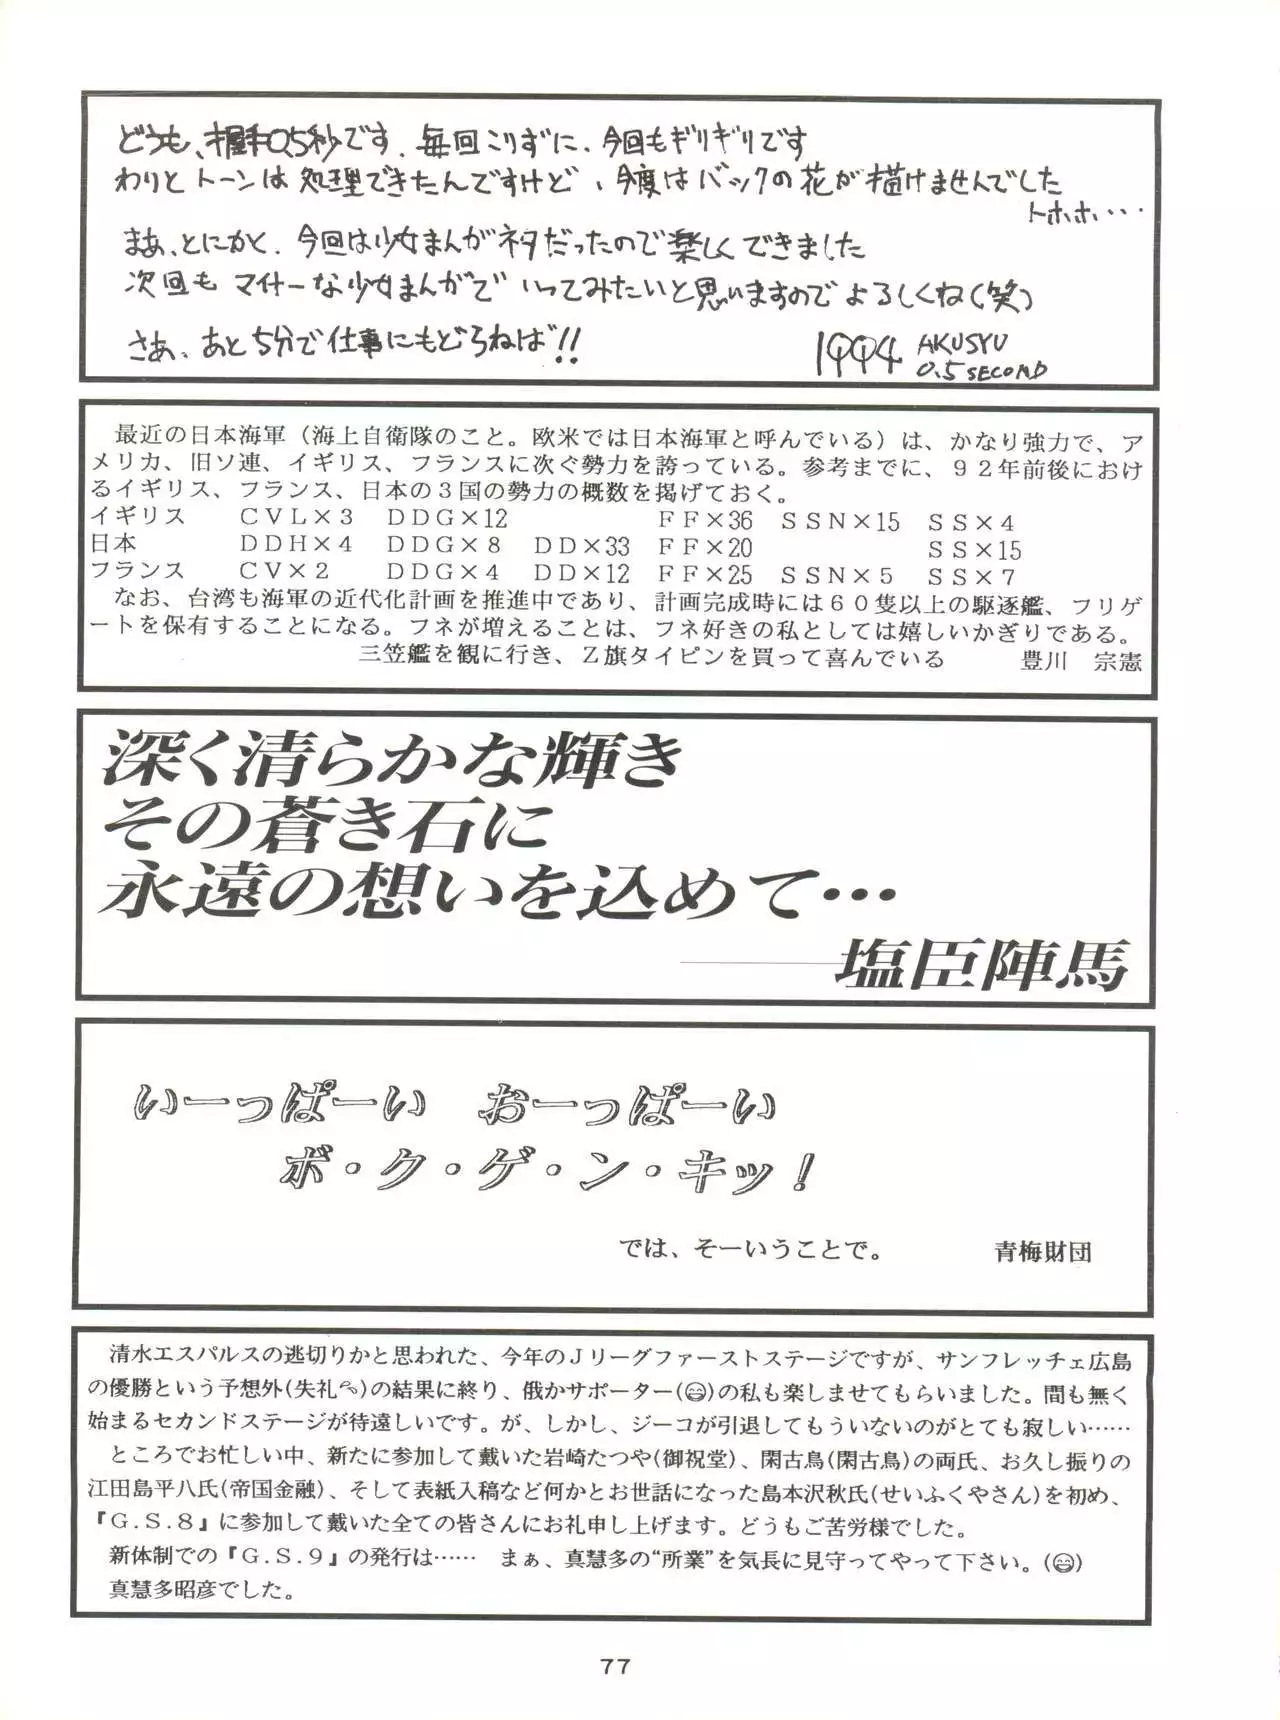 どうも、握手0.5秒です。毎回こりずに、今回もギリギリです
わりとトーンは処理できたんですけど、今度はバックの花が描けませんでした
トホホ・・・
まあ、とにかく、今回は少女まんがネタだったので楽しくできました
次回もマイナーな少女まんがでいってみたいと思いますのでよろしくね(笑)
さあ、あと5分で仕事にもどらねば!!
1994 AKUSYU
0.5 SECOND
最近の日本海軍（海上自衛隊のこと。欧米では日本海軍と呼んでいる）は、かなり強力で、ア
メリカ、旧ソ連、イギリス、フランスに次ぐ勢力を誇っている。参考までに、９２年前後におけ
るイギリス、フランス、日本の３国の勢力の概数を掲げておく。
イギリス ＣＶＬ×３ ＤＤＧ×12 ＦＦ×36 ＳＳＮ×15 ＳＳ×４
日本 ＤＤＨ×４ ＤＤＧ×８ ＤＤ×33 ＦＦ×20 ＳＳ×15
フランス ＣＶ×２ ＤＤＧ×４ ＤＤ×12 ＦＦ×25 ＳＳＮ×５ ＳＳ×７
なお、台湾も海軍の近代化計画を推進中であり、計画完成時には６０隻以上の駆逐艦、フリゲ
ートを保有することになる。フネが増えることは、フネ好きの私としては嬉しいかぎりである。
三笠艦を観に行き、Ｚ旗タイピンを買って喜んでいる 豊川 宗憲
深く清らかな輝き
その蒼き石に
永遠の想いを込めて…
――塩臣陣馬
いーっぱーい おーっぱーい
ボ・ク・ゲ・ン・キッ！
では、そーいうことで。 青梅財団
清水エスパルスの逃切りかと思われた、今年のＪリーグファーストステージですが、サンフレッチェ広島
の優勝という予想外(失礼)の結果に終り、俄かサポーター(😄)の私も楽しませてもらいました。間も無く
始まるセカンドステージが待遠しいです。が、しかし、ジーコが引退してもういないのがとても寂しい……
ところでお忙しい中、新たに参加して戴いた岩崎たつや(御祝堂)、閑古鳥(閑古鳥)の両氏、お久し振りの
江田島平八氏(帝国金融)、そして表紙入稿など何かとお世話になった島本沢秋氏(せいふくやさん)を初め、
『Ｇ.Ｓ.８』に参加して戴いた全ての皆さんにお礼申し上げます。どうもご苦労様でした。
新体制での『Ｇ.Ｓ.９』の発行は…… まぁ、真慧多の“所業”を気長に見守ってやって下さい。(😄)
真慧多昭彦でした。
77